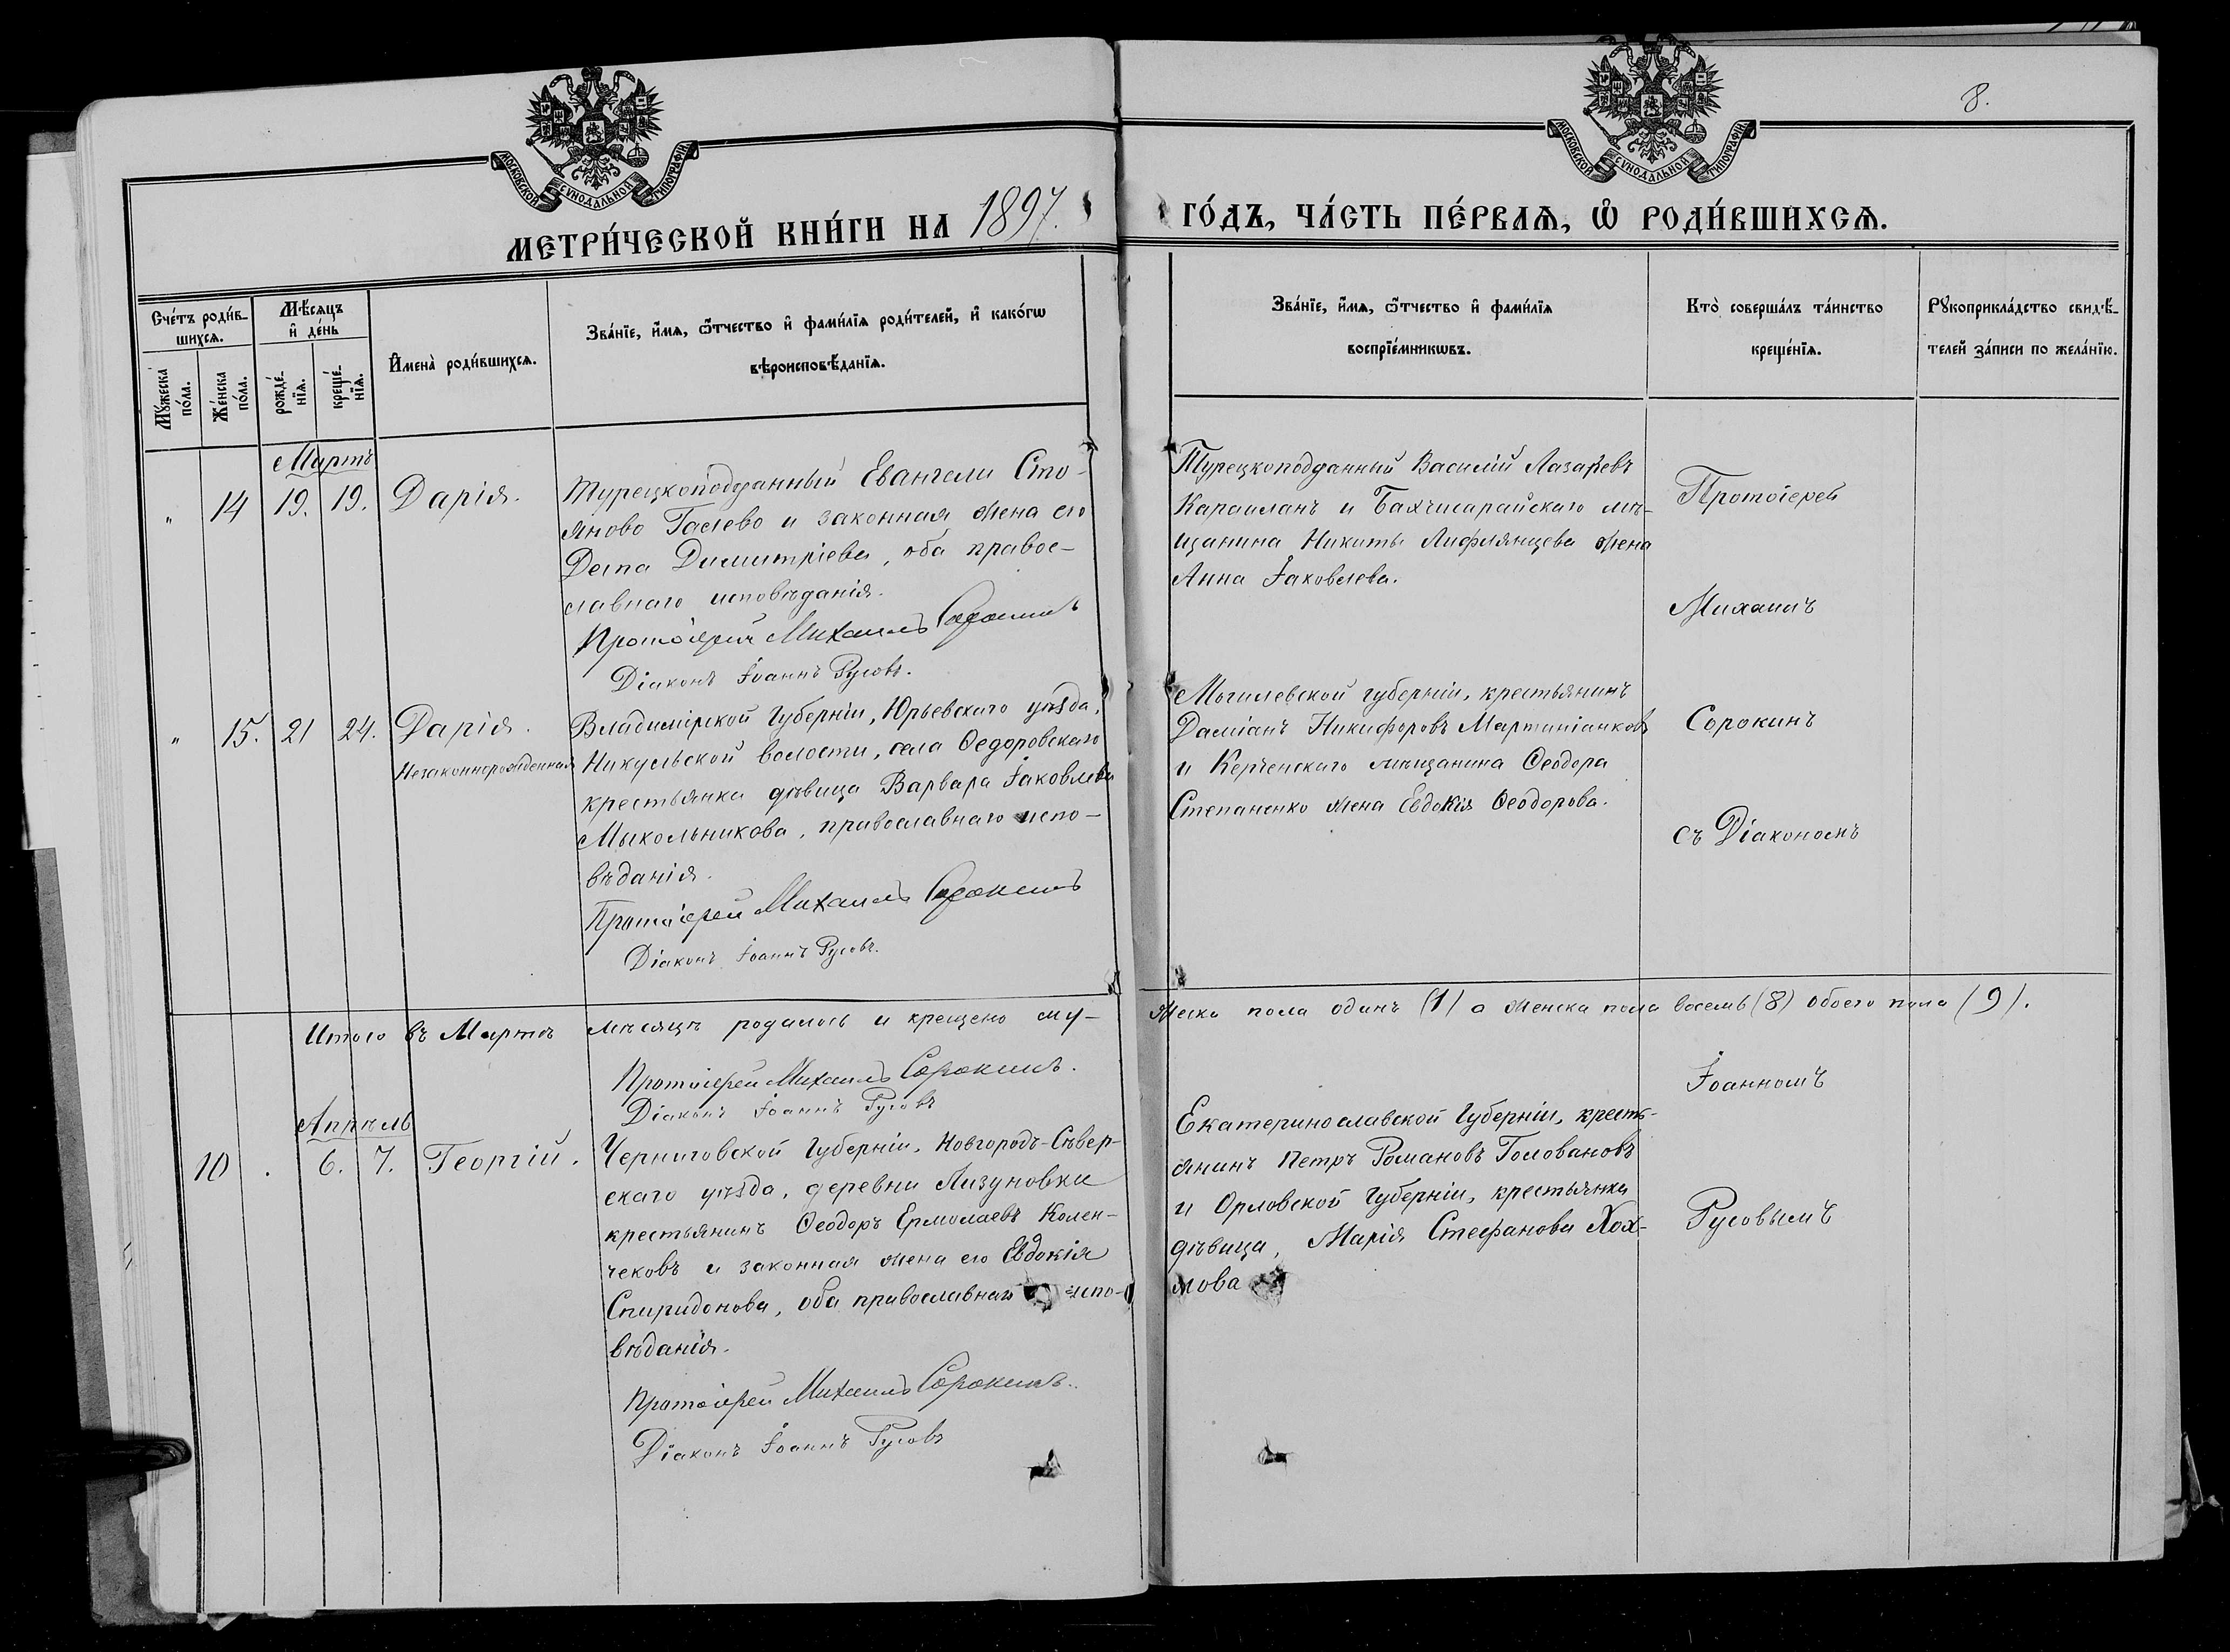 8.
МОСКОВСКОЙ СУНОДАЛЬНОЙ ТИПОГРАФІИ
МОСКОВСКОЙ СУНОДАЛЬНОЙ ТИПОГРАФІИ
МЕТРИ́ЧЕСКОЙ КНИ́ГИ НА 1897.
ГО́ДЪ, ЧА́СТЬ ПЕ́РВАѦ, Ѡ҆ РОДИ́ВШИХСѦ.
Сче́тъ роди́в-
шихсѧ.
Мѣ́сѧцъ
и҆ де́нь
И҆мена̀ роди́вшихсѧ.
Зва́нїе, и҆́мѧ, ѻ҆́тчество и҆ фами́лїѧ роди́телей, и҆ како́гѡ
вѣроисповѣ́данїѧ.
Мꙋ́жеска
по́ла.
Же́нска
по́ла.
рожде́-
нїѧ.
креще́-
нїѧ.
Зва́нїе, и҆́мѧ, ѻ҆́тчество и҆ фами́лїѧ
воспрїе́мникѡвъ.
Кто̀ соверша́лъ та́инство
креще́нїѧ.
Рꙋкоприкла́дство свидѣ́-
телей за́писи по жела́нїю.
Мартъ
„ 14 19. 19. Дарія.
Турецкоподданный Евангели Сто-
яново Гаслево и законная жена его
Деспа Димитріева, оба право-
славнаго исповѣданія.
Протоіерей Михаилъ Сорокинъ
Діаконъ Іоаннъ Русовъ.
Турецкоподданный Василій Лазаревъ
Караиланъ и Бахчисарайскаго мѣ-
щанина Никиты Лифлянцева жена
Анна Іаковлева.
Протоіерей
Михаилъ
Сорокинъ
съ Діакономъ
Іоанномъ
Русовымъ
„ 15. 21 24. Дарія.
Незаконнорожденная
Владимірской губерніи, Юрьевскаго уѣзда,
Никульской волости, села Ѳедоровскаго
крестьянка дѣвица Варвара Іаковлева
Мыкольникова, православнаго испо-
вѣданія.
Протоіерей Михаилъ Сорокинъ
Діаконъ Іоаннъ Русовъ.
Могилевской губерніи, крестьянинъ
Даміанъ Никифоровъ Мартиніанковъ
и Керченскаго мѣщанина Ѳеодора
Степаненко жена Евдокія Ѳеодорова.
Итого въ Мартѣ мѣсяцѣ родилось и крещено му-
жеска пола одинъ (1) а женска пола восемь (8) обоего пола (9).
Протоіерей Михаилъ Сорокинъ.
Діаконъ Іоаннъ Русовъ
Апрѣль
10 . 6. 7. Георгій.
Черниговской Губерніи, Новгородъ-Сѣвер-
скаго уѣзда, деревни Лизуновки
крестьянинъ Ѳеодоръ Ермолаевъ Колен-
чековъ и законная жена его Евдокія
Спиридонова, оба православнаго испо-
вѣданія.
Протоіерей Михаилъ Сорокинъ.
Діаконъ Іоаннъ Русовъ
Екатеринославской Губерніи, кресть-
янинъ Петръ Романовъ Головановъ
и Орловской Губерніи, крестьянка
дѣвица, Марія Стефанова Хох-
лова